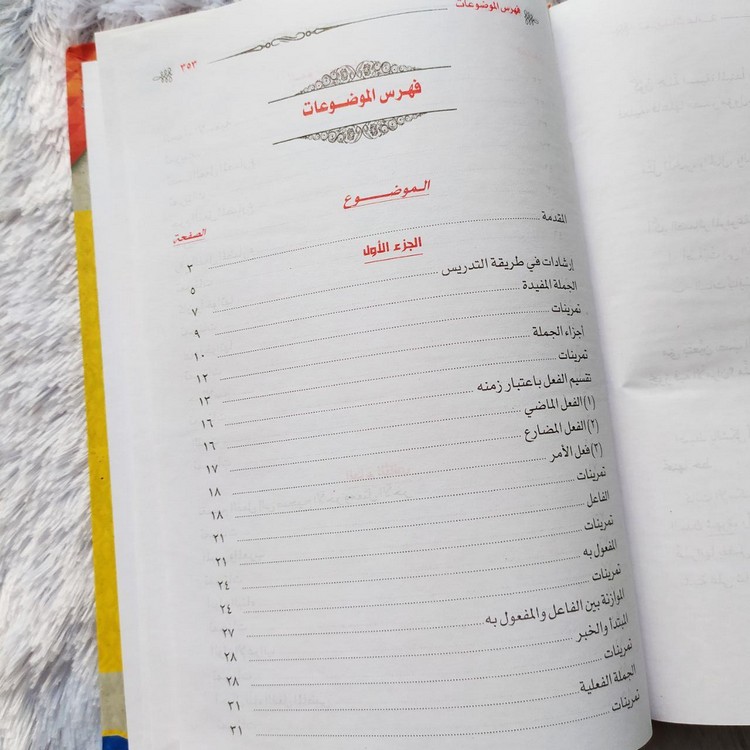 فهرس الموضوعات
٣٥٣
فهرس الموضوعات
الموضوع
الصفحة
المقدمة ٣
الجزء الأول ٥
إرشادات في طريقة التدريس ٧
الجملة المفيدة ٩
تمرينات ١٠
أجزاء الجملة ١٢
تمرينات ١٣
تقسيم الفعل باعتبار زمنه ١٦
(١) الفعل الماضي ١٦
(٢) الفعل المضارع ١٧
(٣) فعل الأمر ١٨
تمرينات ١٨
الفاعل ٢١
تمرينات ٢١
المفعول به ٢٤
تمرينات ٢٤
الموازنة بين الفاعل والمفعول به ٢٧
المبتدأ والخبر ٢٨
تمرينات ٢٨
الجملة الفعلية ٣١
تمرينات ٣١